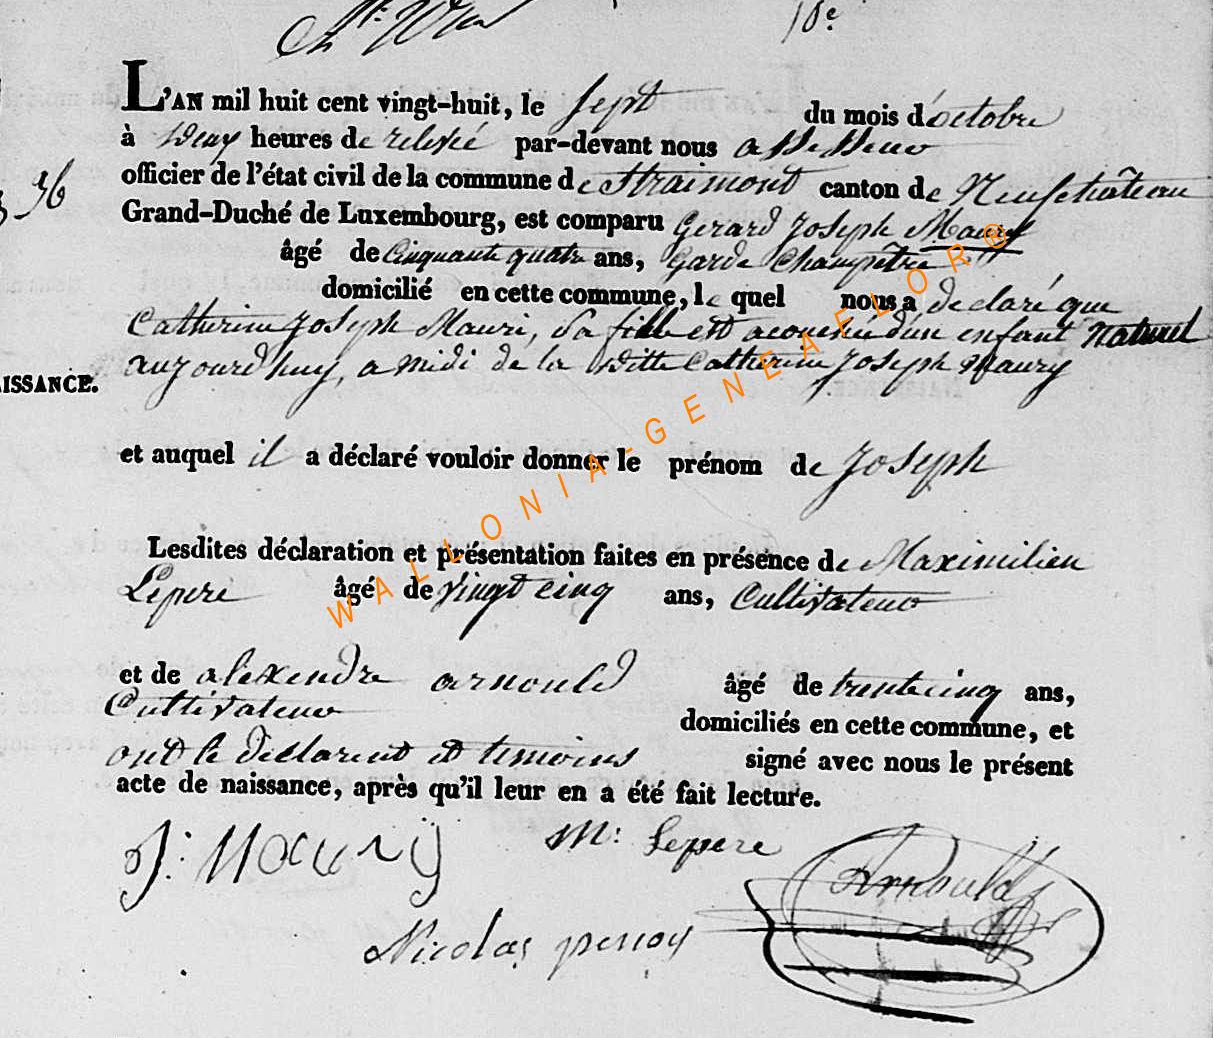 18e
L'AN mil huit cent vingt-huit, le sept du mois d'octobre
à deux heures de relevé par-devant nous assesseur
officier de l'état civil de la commune de Straimont canton de Neufchâteau
36
Grand-Duché de Luxembourg, est comparu Gerard Joseph Maury
âgé de Cinquante quatre ans, Garde Champêtre
domicilié en cette commune, le quel nous a déclaré que
Catherine Joseph Mauri, Sa fille est acouchée d'un enfant Naturel
aujourdhuy, a midi de la ditte Catherine Joseph Maury
AISSANCE.
et auquel il a déclaré vouloir donner le prénom de Joseph
Lesdites déclaration et présentation faites en présence de Maximilien
Lepere âgé de vingt cinq ans, Cultivateur
et de alexendre arnould âgé de trente cinq ans,
Cultivateur domiciliés en cette commune, et
ont le declarent et temoins signé avec nous le présent
acte de naissance, après qu'il leur en a été fait lecture.
J: Maury M: Lepere Arnould
Nicolas pierroy
WALLONIA-GENEAFLOR®